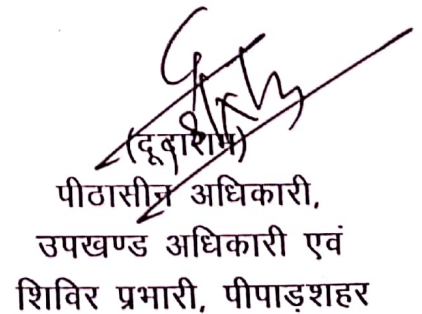 (दूदाराम)
पीठासीन अधिकारी,
उपखण्ड अधिकारी एवं
शिविर प्रभारी, पीपाड़शहर